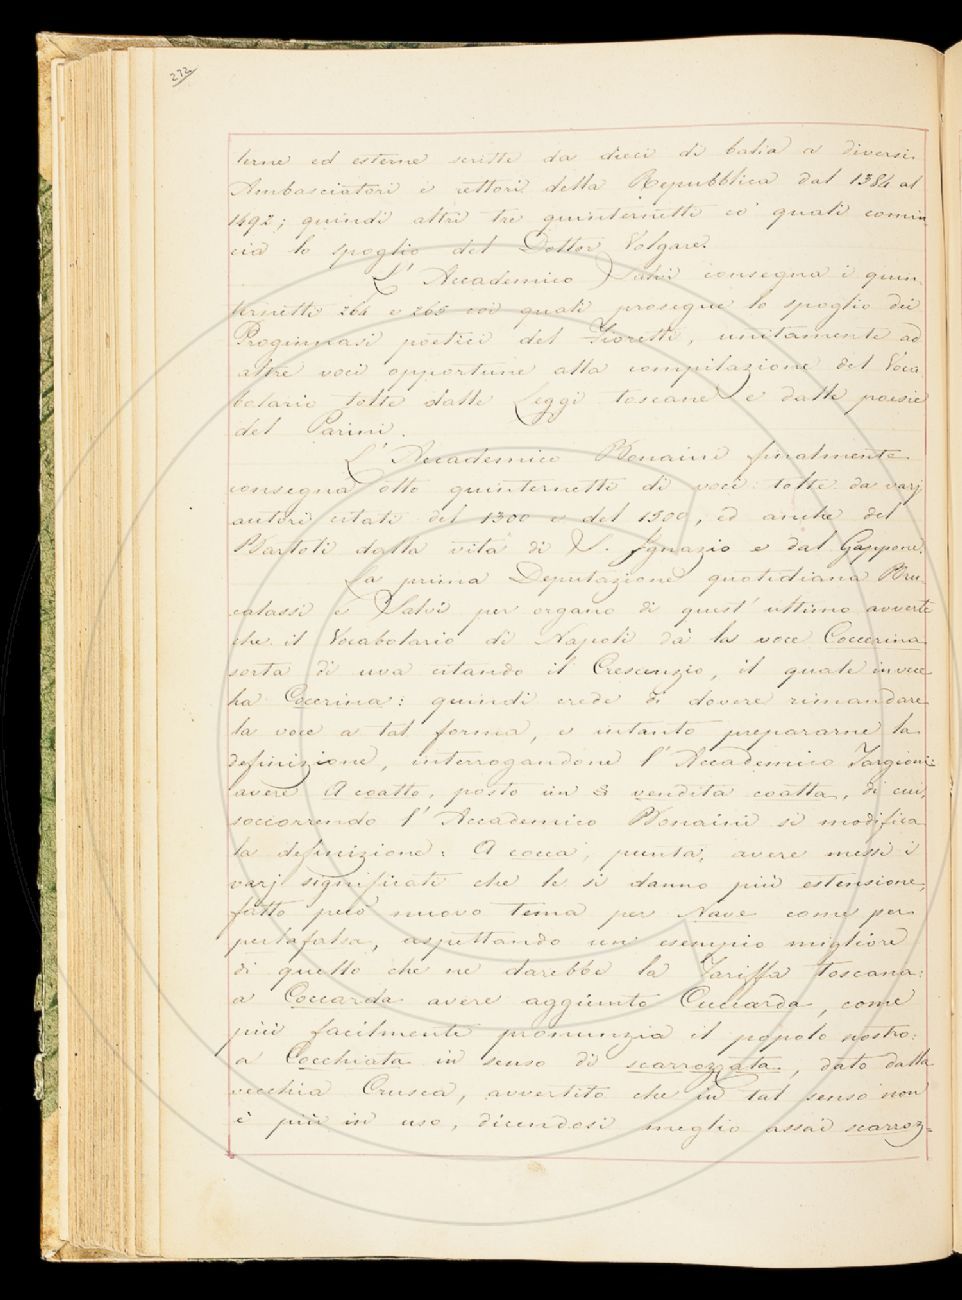 272
terne ed esterne scritte da dieci di balia a diversi
Ambasciatori e rettori della Repubblica dal 1384 al
1492; quindi altri tre quinternetti co' quali comin
cia lo spoglio del Dottor Volgare.
L'Accademico Salvi consegna i quin-
ternetti 264 e 265 coi quali prosegue lo spoglio dei
Proginnasi poetici del Fioretti, unitamente ad
altre voci opportune alla compilazione del Voca
bolario tolte dalle Leggi toscane e dalle poesie
del Parini.
L'Accademico Bonaini finalmente
consegna otto quinternetti di voci tolte da varj
autori citati del 1300 e del 1500, ed anche del
Bartoli dalla vita di S. Ignazio e dal Giappone.
La prima Deputazione quotidiana Bru-
calassi e Salvi per organo di quest'ultimo avverte
che il Vocabolario di Napoli dà la voce Coccerina
sorta di uva citando il Crescenzio, il quale invece
ha Cocerina: quindi crede di dovere rimandare
la voce a tal forma, e intanto prepararne la
definizione, interrogandone l'Accademico Targioni:
avere A coatto, posto un § vendita coatta, di cui,
soccorrendo l'Accademico Bonaini si modifica
la definizione: A cocca, punta, avere messi i
varj significati che le si danno più estensione,
fatto però nuovo tema per Nave come per
perlafalsa, aspettando un esempio migliore
di quello che ne darebbe la Tariffa toscana:
a Coccarda avere aggiunto Cuccarda, come
più facilmente pronunzia il popolo nostro:
a Cocchiata in senso di scarrozzata, dato dalla
vecchia Crusca, avvertito che in tal senso non
è più in uso, dicendosi meglio assai scarroz-